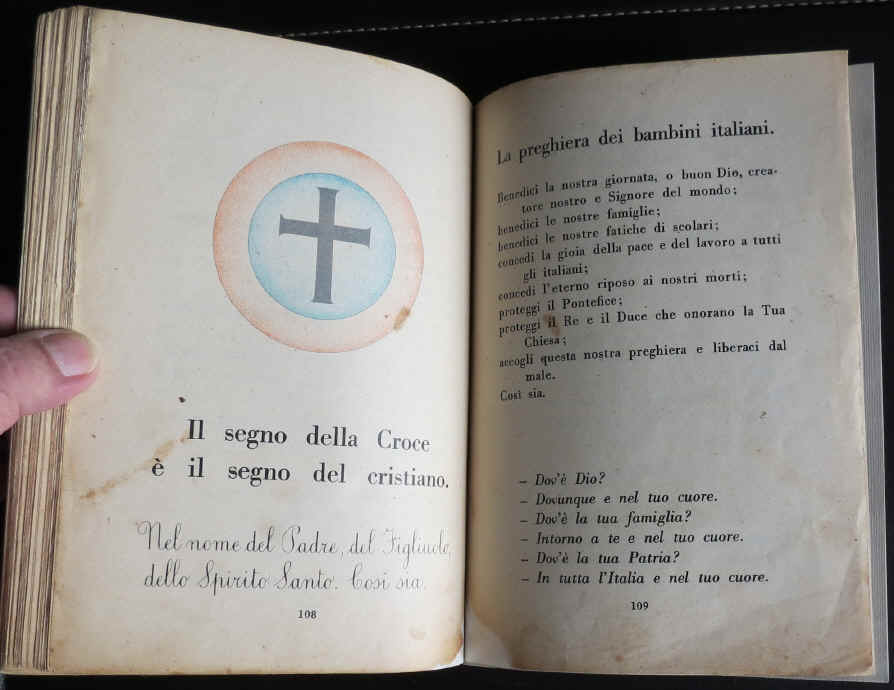 Il segno della Croce
è il segno del cristiano.
Nel nome del Padre, del Figliuolo,
dello Spirito Santo. Così sia.
108
La preghiera dei bambini italiani.
Benedici la nostra giornata, o buon Dio, crea-
tore nostro e Signore del mondo;
benedici le nostre famiglie;
benedici le nostre fatiche di scolari;
concedi la gioia della pace e del lavoro a tutti
gli italiani;
concedi l'eterno riposo ai nostri morti;
proteggi il Pontefice;
proteggi il Re e il Duce che onorano la Tua
Chiesa;
accogli questa nostra preghiera e liberaci dal
male.
Così sia.
– Dov'è Dio?
– Dovunque e nel tuo cuore.
– Dov'è la tua famiglia?
– Intorno a te e nel tuo cuore.
– Dov'è la tua Patria?
– In tutta l'Italia e nel tuo cuore.
109